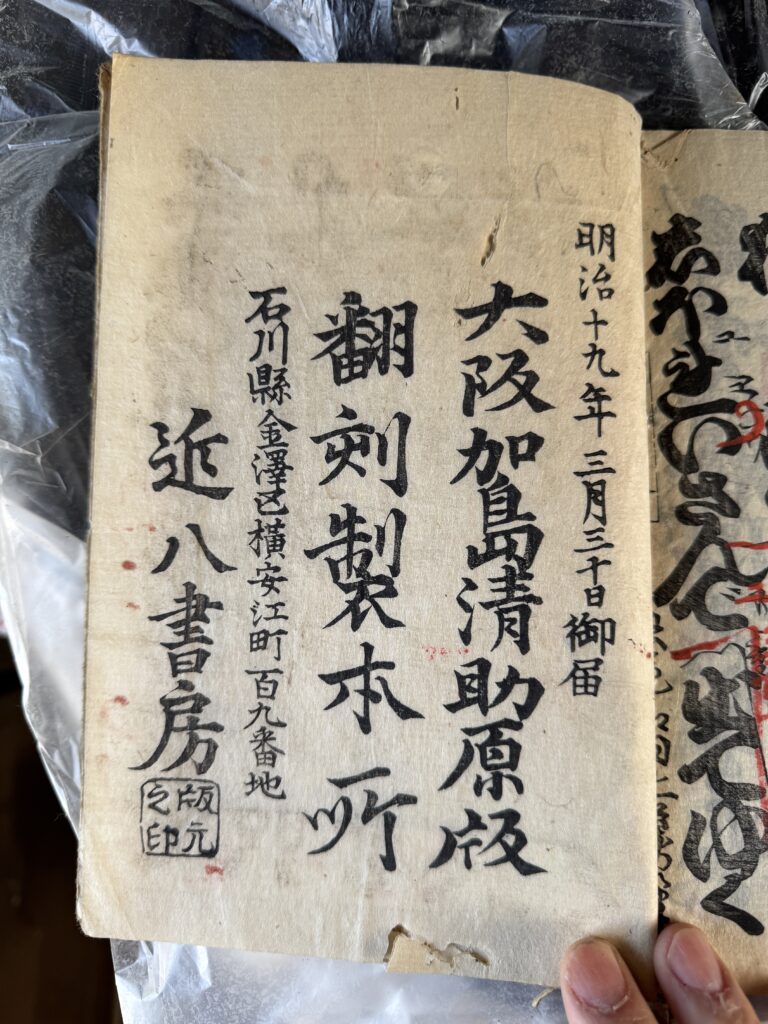 明治十九年三月三十日御届
大阪加島清助原版
翻刻製本所
石川縣金澤区横安江町百九番地
近八書房
版元
之印